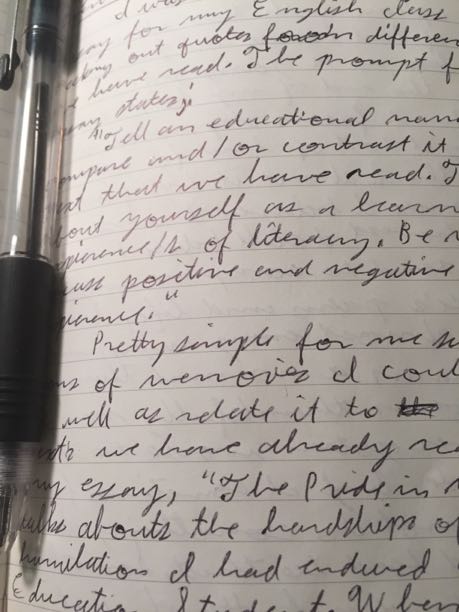 I was
for my English class
out quotes from differen
have read. The prompt f
states;
"Tell an educational narr
ompare and/or contrast it
that we have read. T
bout yourself as a learn
xperience/s of literacy. Be
positive and negative
perience."
Pretty simple for me s
of memories I coul
well as relate it to the
we have already rea
my essay, "The Pride in
talks abouts the hardships of
humiliation I had endured
Education Student. When